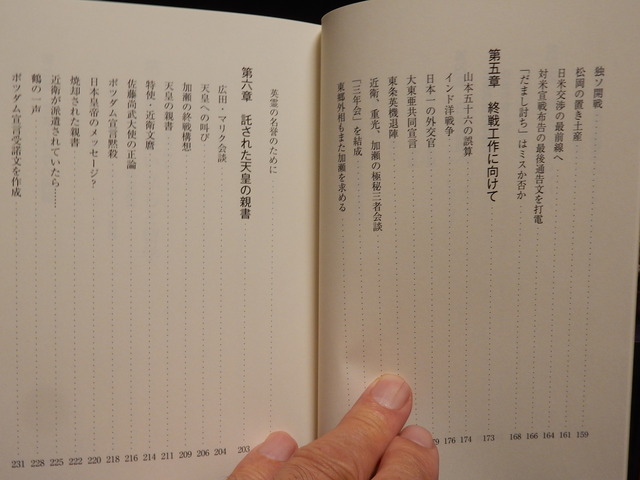 独ソ開戦 159
松岡の置き土産 161
日米交渉の最前線へ 164
対米宣戦布告の最後通告文を打電 166
「だまし討ち」はミスか否か 168
第五章 終戦工作に向けて 173
山本五十六の誤算 174
インド洋戦争 176
日本一の外交官
大東亜共同宣言
東条英機退陣
「三年会」を結成
近衛、重光、加瀬の極秘三者会談
東郷外相もまた加瀬を求める
英霊の名誉のために
第六章 託された天皇の親書 203
広田・マリク会談 204
天皇への叫び 206
加瀬の終戦構想 209
天皇の親書 211
特使・近衛文麿 214
佐藤尚武大使の正論 216
ポツダム宣言黙殺 218
日本皇帝のメッセージ? 220
焼却された親書 222
近衛が派遣されていたら…… 225
鶴の一声 228
ポツダム宣言受諾文を作成 231